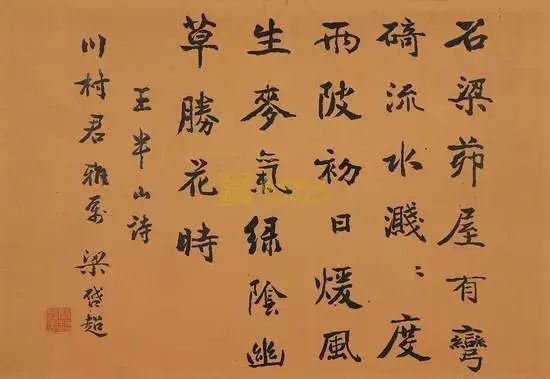 石梁茆屋有彎
碕流水濺〻度
兩陂初日煖風
生麥氣綠陰幽
草勝花時
王半山詩
川村君雅屬 梁啓超